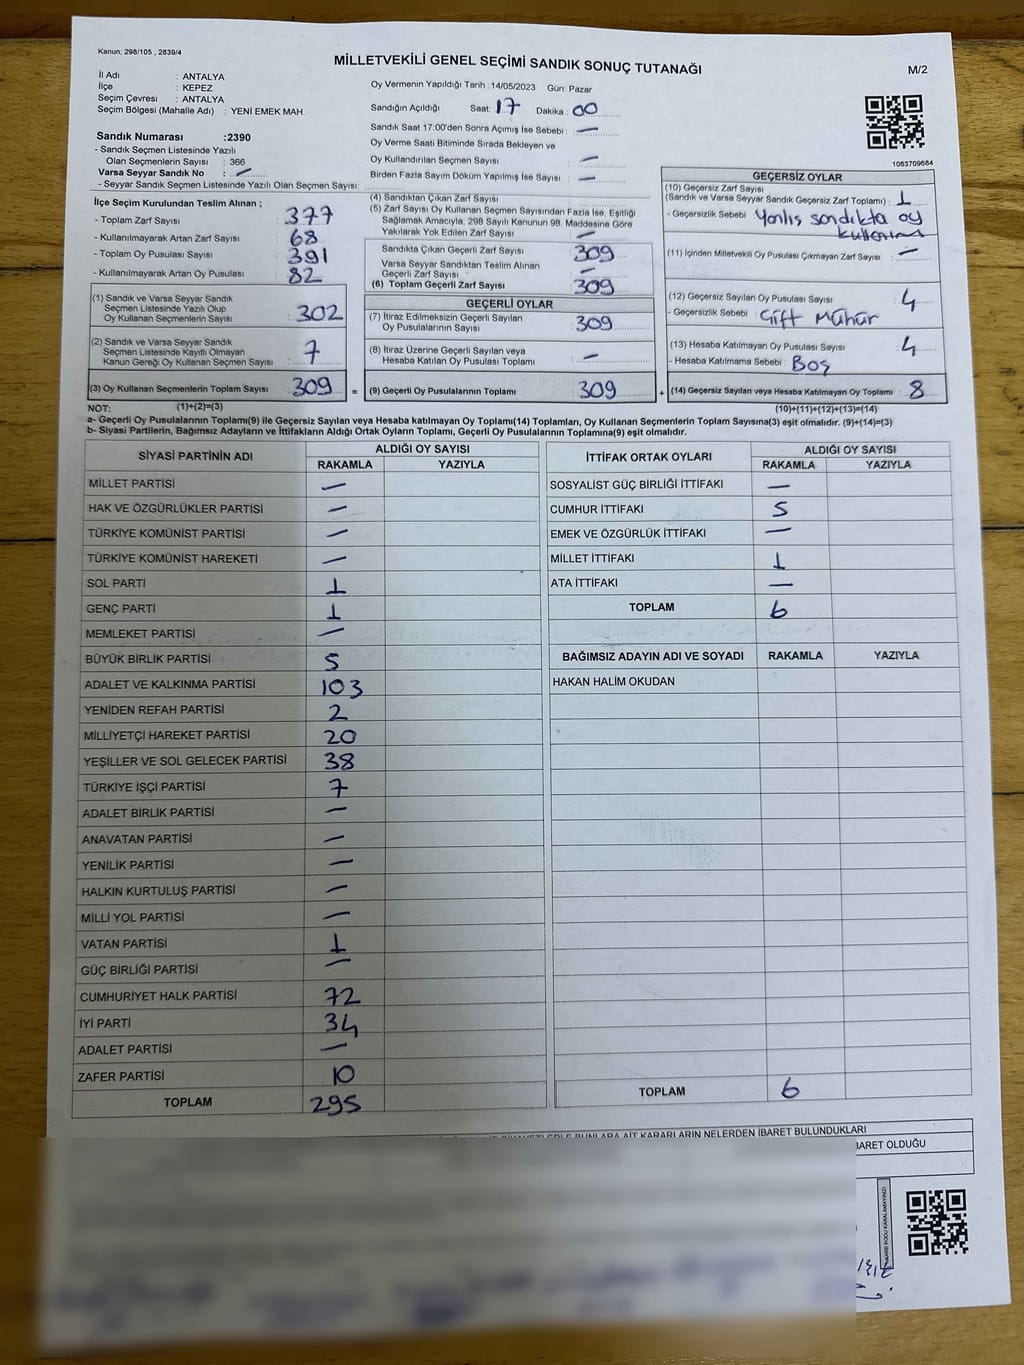 Kanun; 298/105 , 2839/4
MİLLETVEKİLİ GENEL SEÇİMİ SANDIK SONUÇ TUTANAĞI
M/2
İl Adı : ANTALYA
İlçe : KEPEZ
Seçim Çevresi : ANTALYA
Seçim Bölgesi (Mahalle Adı) : YENİ EMEK MAH.
Oy Vermenin Yapıldığı Tarih :14/05/2023 Gün: Pazar
Sandığın Açıldığı Saat: 17 Dakika : 00
Sandık Saat 17:00'den Sonra Açımış İse Sebebi : —
Oy Verme Saati Bitiminde Sırada Bekleyen ve
Oy Kullandırılan Seçmen Sayısı : —
Birden Fazla Sayım Döküm Yapılmış İse Sayısı : —
1083709684
Sandık Numarası :2390
- Sandık Seçmen Listesinde Yazılı
Olan Seçmenlerin Sayısı : 366
Varsa Seyyar Sandık No : —
- Seyyar Sandık Seçmen Listesinde Yazılı Olan Seçmen Sayısı:
İlçe Seçim Kurulundan Teslim Alınan ;
- Toplam Zarf Sayısı : 377
- Kullanılmayarak Artan Zarf Sayısı : 68
- Toplam Oy Pusulası Sayısı : 391
- Kullanılmayarak Artan Oy Pusulası : 82
(1) Sandık ve Varsa Seyyar Sandık
Seçmen Listesinde Yazılı Olup
Oy Kullanan Seçmenlerin Sayısı : 302
(2) Sandık ve Varsa Seyyar Sandık
Seçmen Listesinde Kayıtlı Olmayan
Kanun Gereği Oy Kullanan Seçmen Sayısı : 7
(3) Oy Kullanan Seçmenlerin Toplam Sayısı : 309 =
(4) Sandıktan Çıkan Zarf Sayısı :
(5) Zarf Sayısı Oy Kullanan Seçmen Sayısından Fazla İse, Eşitliği
Sağlamak Amacıyla, 298 Sayılı Kanunun 98. Maddesine Göre
Yakılarak Yok Edilen Zarf Sayısı : —
Sandıkta Çıkan Geçerli Zarf Sayısı : 309
Varsa Seyyar Sandıktan Teslim Alınan
Geçerli Zarf Sayısı : —
(6) Toplam Geçerli Zarf Sayısı : 309
GEÇERLİ OYLAR
(7) İtiraz Edilmeksizin Geçerli Sayılan
Oy Pusulalarının Sayısı : 309
(8) İtiraz Üzerine Geçerli Sayılan veya
Hesaba Katılan Oy Pusulası Toplamı : —
(9) Geçerli Oy Pusulalarının Toplamı : 309 +
GEÇERSİZ OYLAR
(10) Geçersiz Zarf Sayısı
(Sandık ve Varsa Seyyar Sandık Geçersiz Zarf Toplamı) : 1
- Geçersizlik Sebebi : Yanlış sandıkta oy
kullanımı
(11) İçinden Milletvekili Oy Pusulası Çıkmayan Zarf Sayısı : —
(12) Geçersiz Sayılan Oy Pusulası Sayısı : 4
- Geçersizlik Sebebi : Çift Mühür
(13) Hesaba Katılmayan Oy Pusulası Sayısı : 4
- Hesaba Katılmama Sebebi : Boş
(14) Geçersiz Sayılan veya Hesaba Katılmayan Oy Toplamı : 8
NOT: (1)+(2)=(3)
(10)+(11)+(12)+(13)=(14)
a- Geçerli Oy Pusulalarının Toplamı(9) ile Geçersiz Sayılan veya Hesaba katılmayan Oy Toplamı(14) Toplamları, Oy Kullanan Seçmenlerin Toplam Sayısına(3) eşit olmalıdır. (9)+(14)=(3)
b- Siyasi Partilerin, Bağımsız Adayların ve İttifakların Aldığı Ortak Oyların Toplamı, Geçerli Oy Pusulalarının Toplamına(9) eşit olmalıdır.
SİYASİ PARTİNİN ADI ALDIĞI OY SAYISI
RAKAMLA YAZIYLA
MİLLET PARTİSİ —
HAK VE ÖZGÜRLÜKLER PARTİSİ —
TÜRKİYE KOMÜNİST PARTİSİ —
TÜRKİYE KOMÜNİST HAREKETİ —
SOL PARTİ 1
GENÇ PARTİ 1
MEMLEKET PARTİSİ —
BÜYÜK BİRLİK PARTİSİ 5
ADALET VE KALKINMA PARTİSİ 103
YENİDEN REFAH PARTİSİ 2
MİLLİYETÇİ HAREKET PARTİSİ 20
YEŞİLLER VE SOL GELECEK PARTİSİ 38
TÜRKİYE İŞÇİ PARTİSİ 7
ADALET BİRLİK PARTİSİ —
ANAVATAN PARTİSİ —
YENİLİK PARTİSİ —
HALKIN KURTULUŞ PARTİSİ —
MİLLİ YOL PARTİSİ —
VATAN PARTİSİ 1
GÜÇ BİRLİĞİ PARTİSİ —
CUMHURİYET HALK PARTİSİ 72
İYİ PARTİ 34
ADALET PARTİSİ —
ZAFER PARTİSİ 10
TOPLAM 295
İTTİFAK ORTAK OYLARI ALDIĞI OY SAYISI
RAKAMLA YAZIYLA
SOSYALİST GÜÇ BİRLİĞİ İTTİFAKI —
CUMHUR İTTİFAKI 5
EMEK VE ÖZGÜRLÜK İTTİFAKI —
MİLLET İTTİFAKI 1
ATA İTTİFAKI —
TOPLAM 6
BAĞIMSIZ ADAYIN ADI VE SOYADI RAKAMLA YAZIYLA
HAKAN HALİM OKUDAN
TOPLAM 6
BUNLARA AİT KARARLARIN NELERDEN İBARET BULUNDUKLARI
BARET OLDUĞU